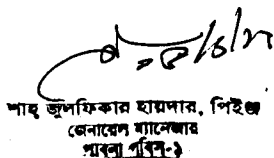 শাহ্ জুলফিকার হায়দার, পিইঞ্জ
জেনারেল ম্যানেজার
পাবনা পবিস-১